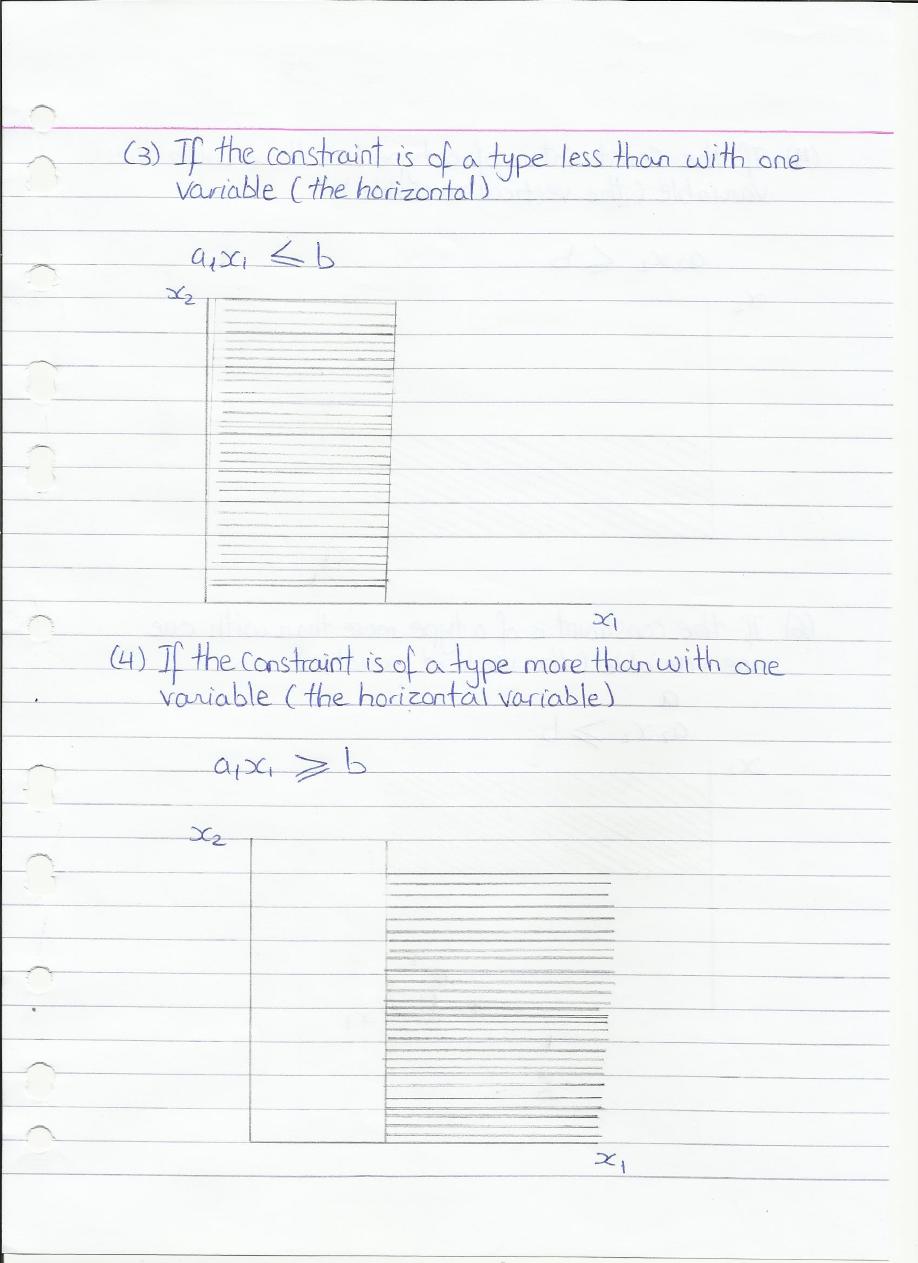 (3) If the constraint is of a type less than with one
variable (the horizontal)
a₁x₁ ≤ b
x₂
x₁
(4) If the constraint is of a type more than with one
variable (the horizontal variable)
a₁x₁ ≥ b
x₂
x₁